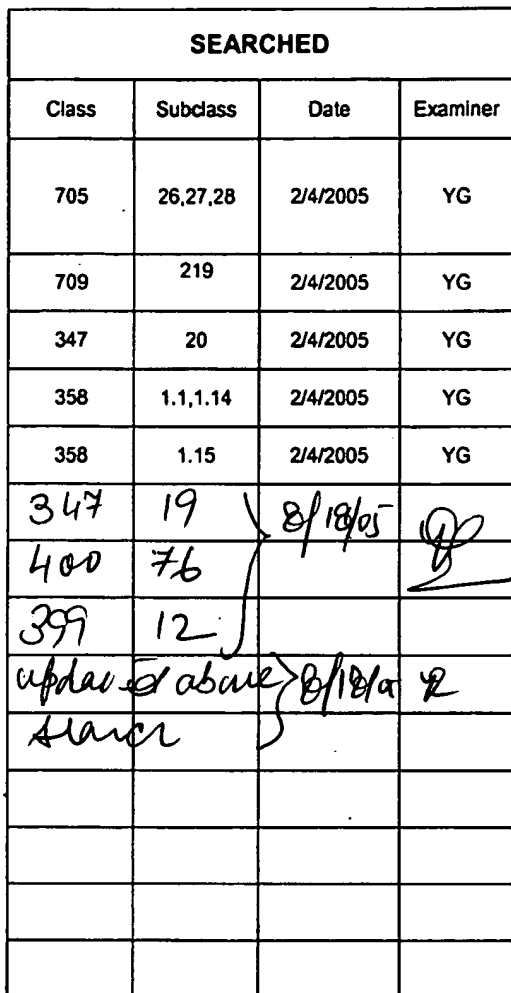 SEARCHED
Class Subclass Date Examiner
705 26,27,28 2/4/2005 YG
709 219 2/4/2005 YG
347 20 2/4/2005 YG
358 1.1,1.14 2/4/2005 YG
358 1.15 2/4/2005 YG
347 19 8/18/05
400 76
399 12
updated above 8/18/05
search